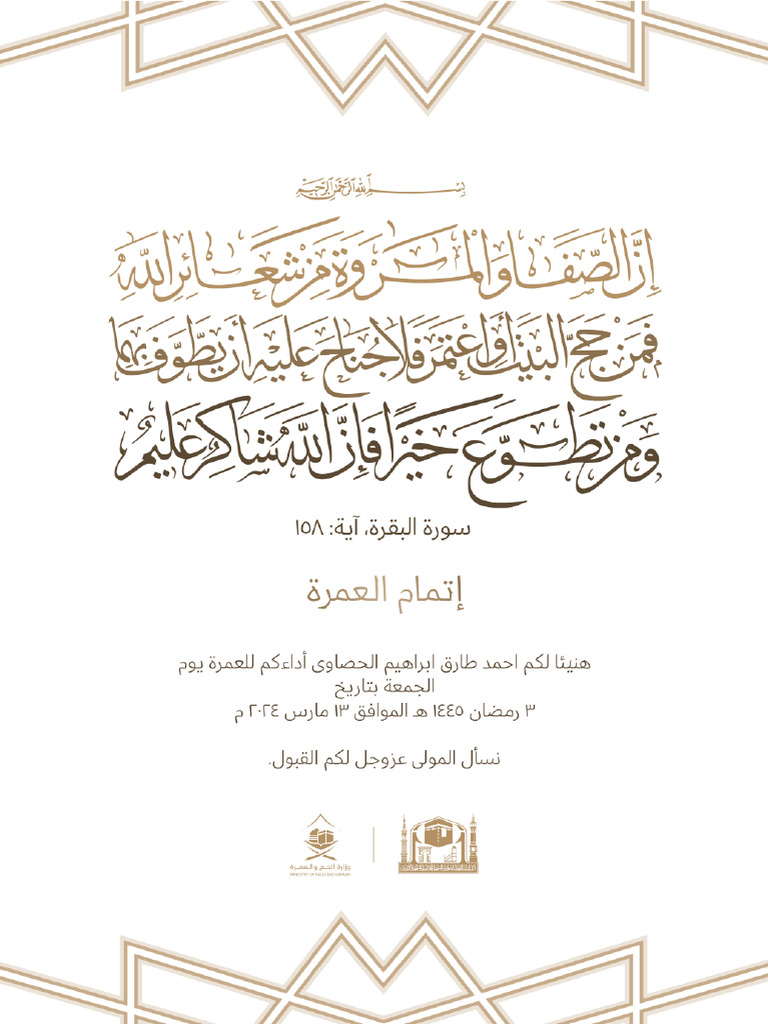 بسم الله الرحمن الرحيم
إن الصفا والمروة من شعائر الله
فمن حج البيت أو اعتمر فلا جناح عليه أن يطوف بهما
ومن تطوع خيرا فإن الله شاكر عليم
سورة البقرة، آية: ١٥٨
إتمام العمرة
هنيئا لكم احمد طارق ابراهيم الحصاوى أداءكم للعمرة يوم
الجمعة بتاريخ
٣ رمضان ١٤٤٥ هـ الموافق ١٣ مارس ٢٠٢٤ م
نسأل المولى عزوجل لكم القبول.
وزارة الحج والعمرة
MINISTRY OF HAJJ AND UMRAH